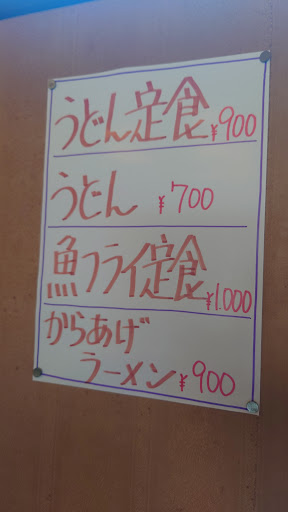 うどん定食 ¥900
うどん ¥700
魚フライ定食 ¥1.000
からあげ
ラーメン ¥900